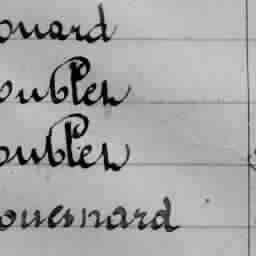 ouard
oublet
oublet
ouesnard